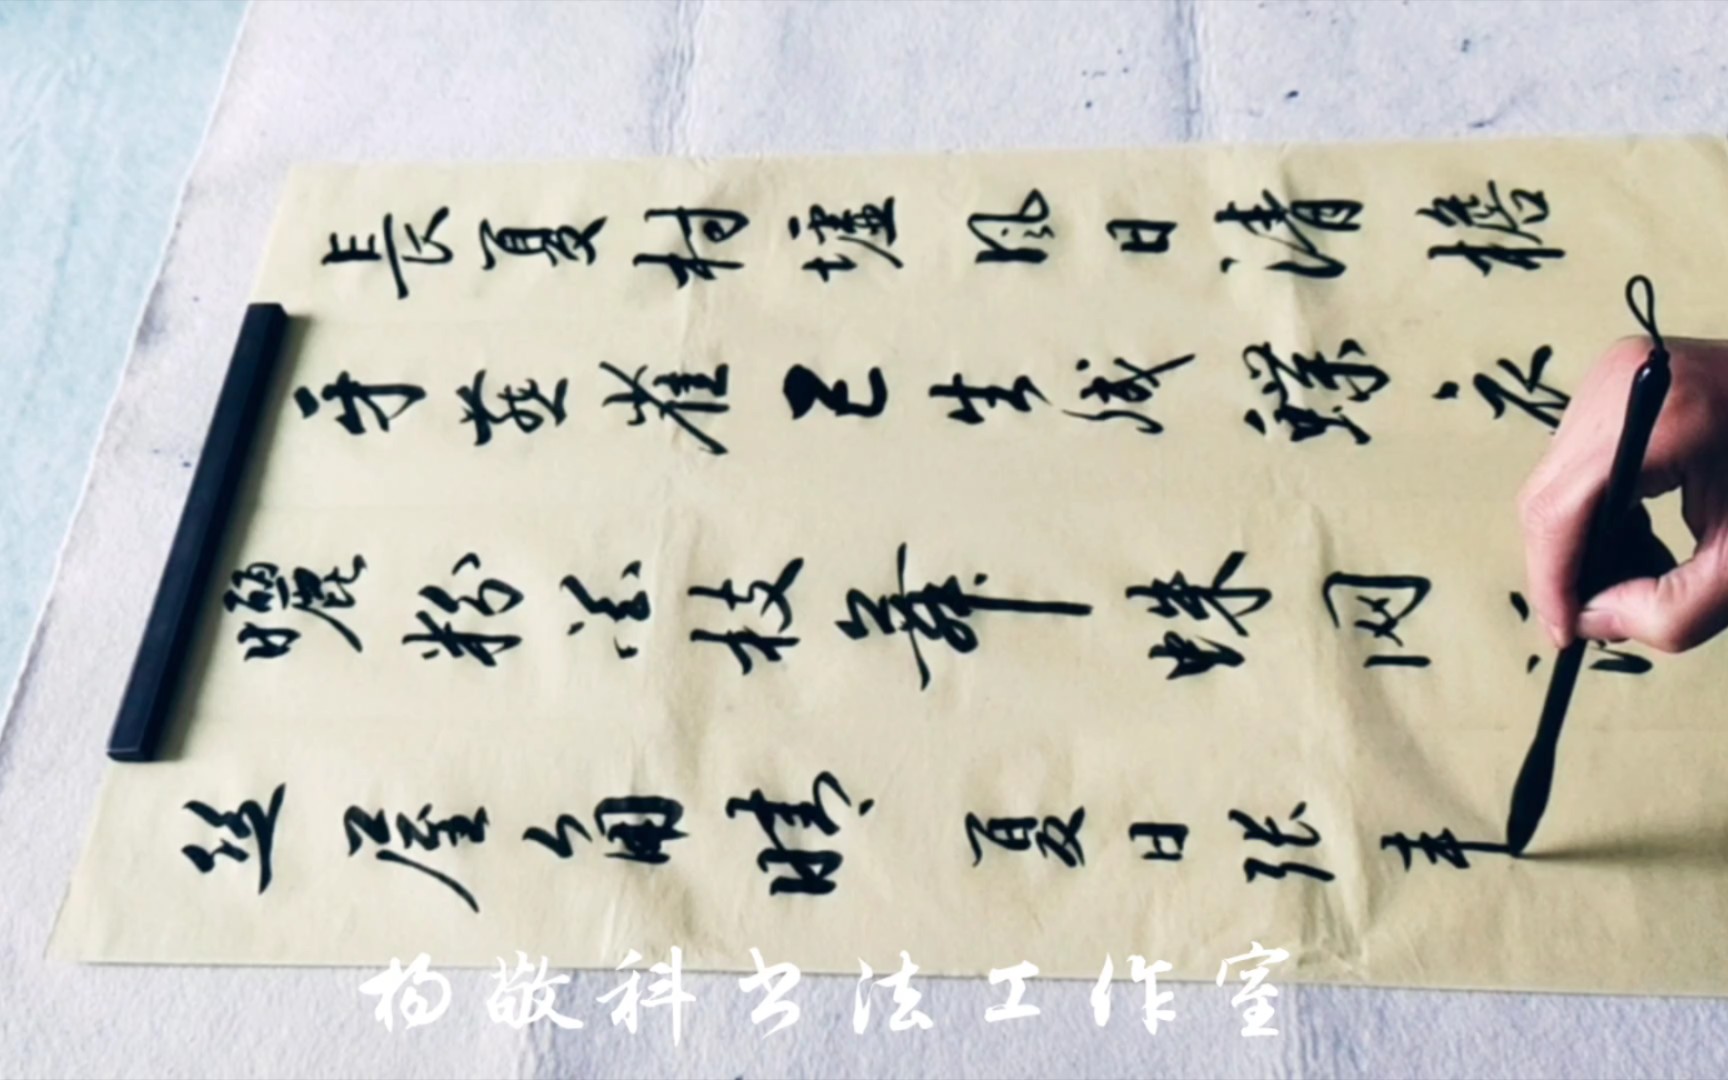 長夏村墟风日清檐
牙燕雀已生成蝶衣
曬粉花枝舞蛛网
丝屋角晴 夏日张耒
杨敬科书法工作室